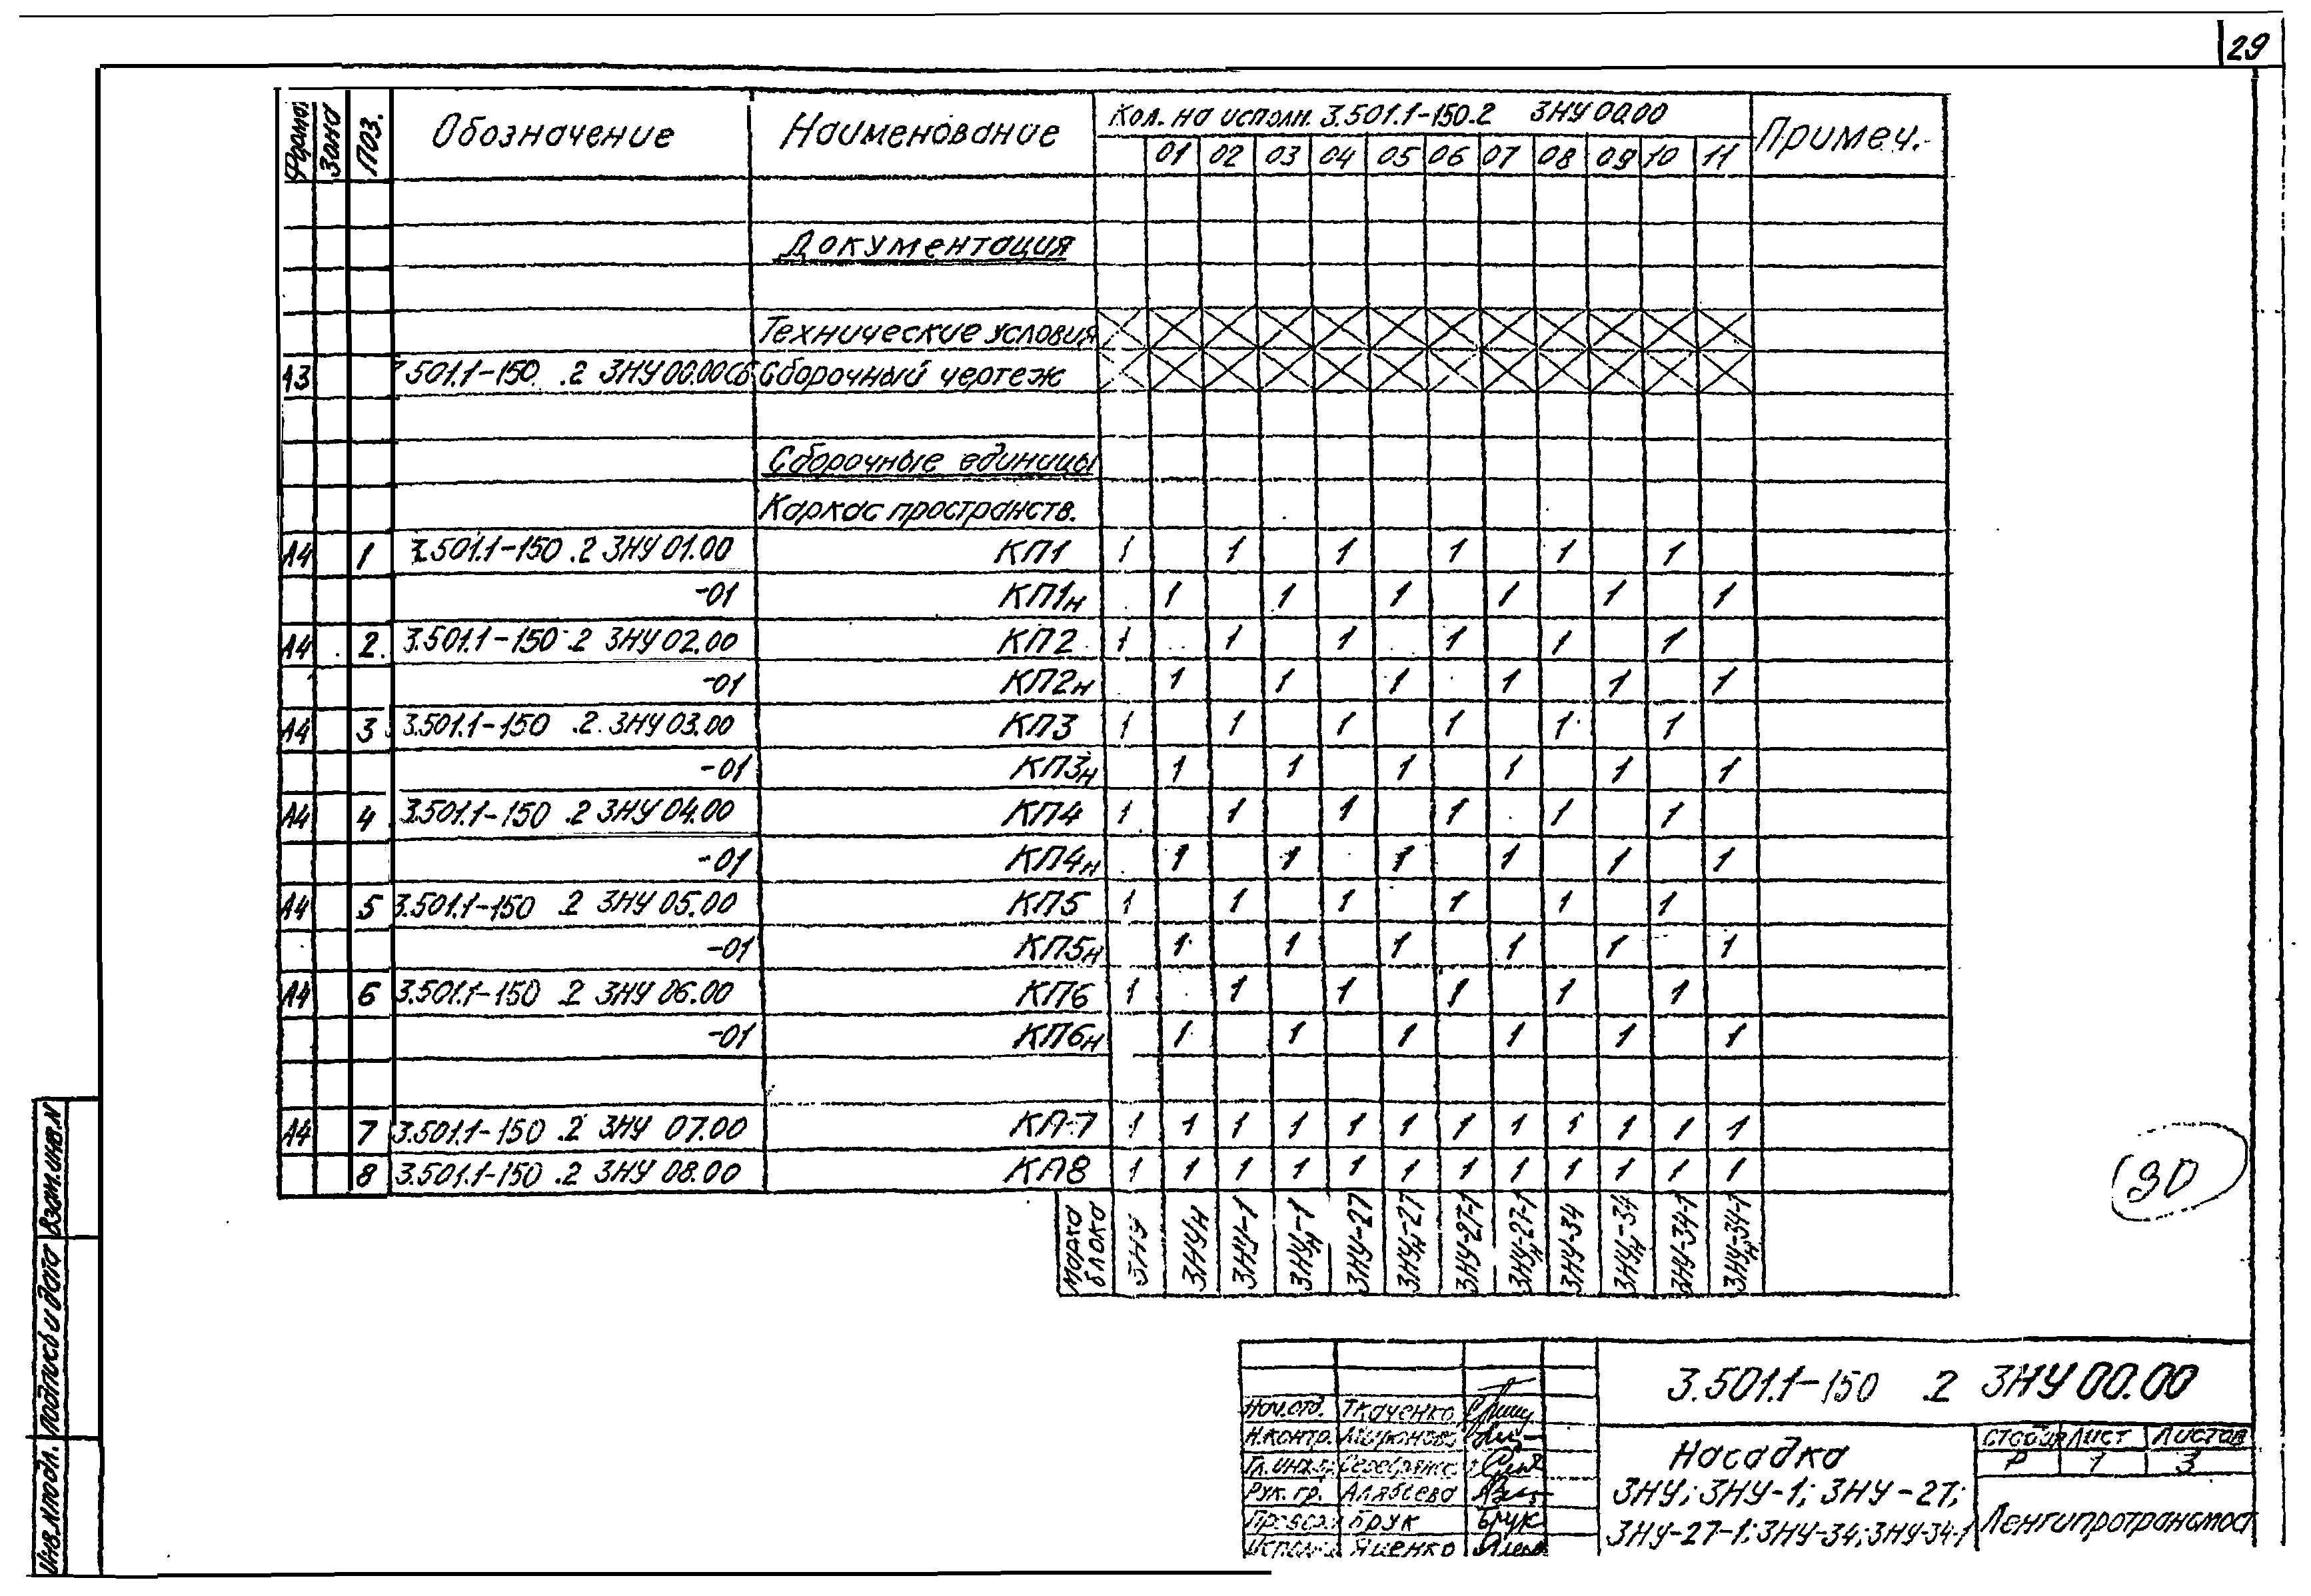 29
Формат Зона Поз. Обозначение Наименование Кол. на исполн. 3.501.1-150.2 ЗНУ 00.00 Примеч.
01 02 03 04 05 06 07 08 09 10 11
Документация
Технические условия
А3 3.501.1-150 .2 ЗНУ 00.00СБ Сборочный чертеж
Сборочные единицы
Каркас пространств.
А4 1 3.501.1-150 .2 ЗНУ 01.00 КП1 1 1 1 1 1 1
-01 КП1н 1 1 1 1 1 1
А4 2 3.501.1-150 .2 ЗНУ 02.00 КП2 1 1 1 1 1 1
-01 КП2н 1 1 1 1 1 1
А4 3 3.501.1-150 .2 ЗНУ 03.00 КП3 1 1 1 1 1 1
-01 КП3н 1 1 1 1 1 1
А4 4 3.501.1-150 .2 ЗНУ 04.00 КП4 1 1 1 1 1 1
-01 КП4н 1 1 1 1 1 1
А4 5 3.501.1-150 .2 ЗНУ 05.00 КП5 1 1 1 1 1 1
-01 КП5н 1 1 1 1 1 1
А4 6 3.501.1-150 .2 ЗНУ 06.00 КП6 1 1 1 1 1 1
-01 КП6н 1 1 1 1 1 1
А4 7 3.501.1-150 .2 ЗНУ 07.00 КП-7 1 1 1 1 1 1 1 1 1 1 1 1
8 3.501.1-150 .2 ЗНУ 08.00 КП8 1 1 1 1 1 1 1 1 1 1 1 1
Марка блока ЗНУ ЗНУн ЗНУ-1 ЗНУн-1 ЗНУ-27 ЗНУн-27 ЗНУ-27-1 ЗНУн-27-1 ЗНУ-34 ЗНУн-34 ЗНУ-34-1 ЗНУн-34-1
30
Взам.инв.N
Подпись и дата
Инв.Nподл.
3.501.1-150 .2 ЗНУ 00.00
Нач.отд. Ткаченко
Н.контр. Миронова
Гл.инж.пр.
Рук. гр. Алябьева
Провер. Брук Брук
Исполн. Яценко
Насадка
ЗНУ; ЗНУ-1; ЗНУ-27;
ЗНУ-27-1; ЗНУ-34; ЗНУ-34-1
Стадия Лист Листов
Р 1 3
Ленгипротрансмост